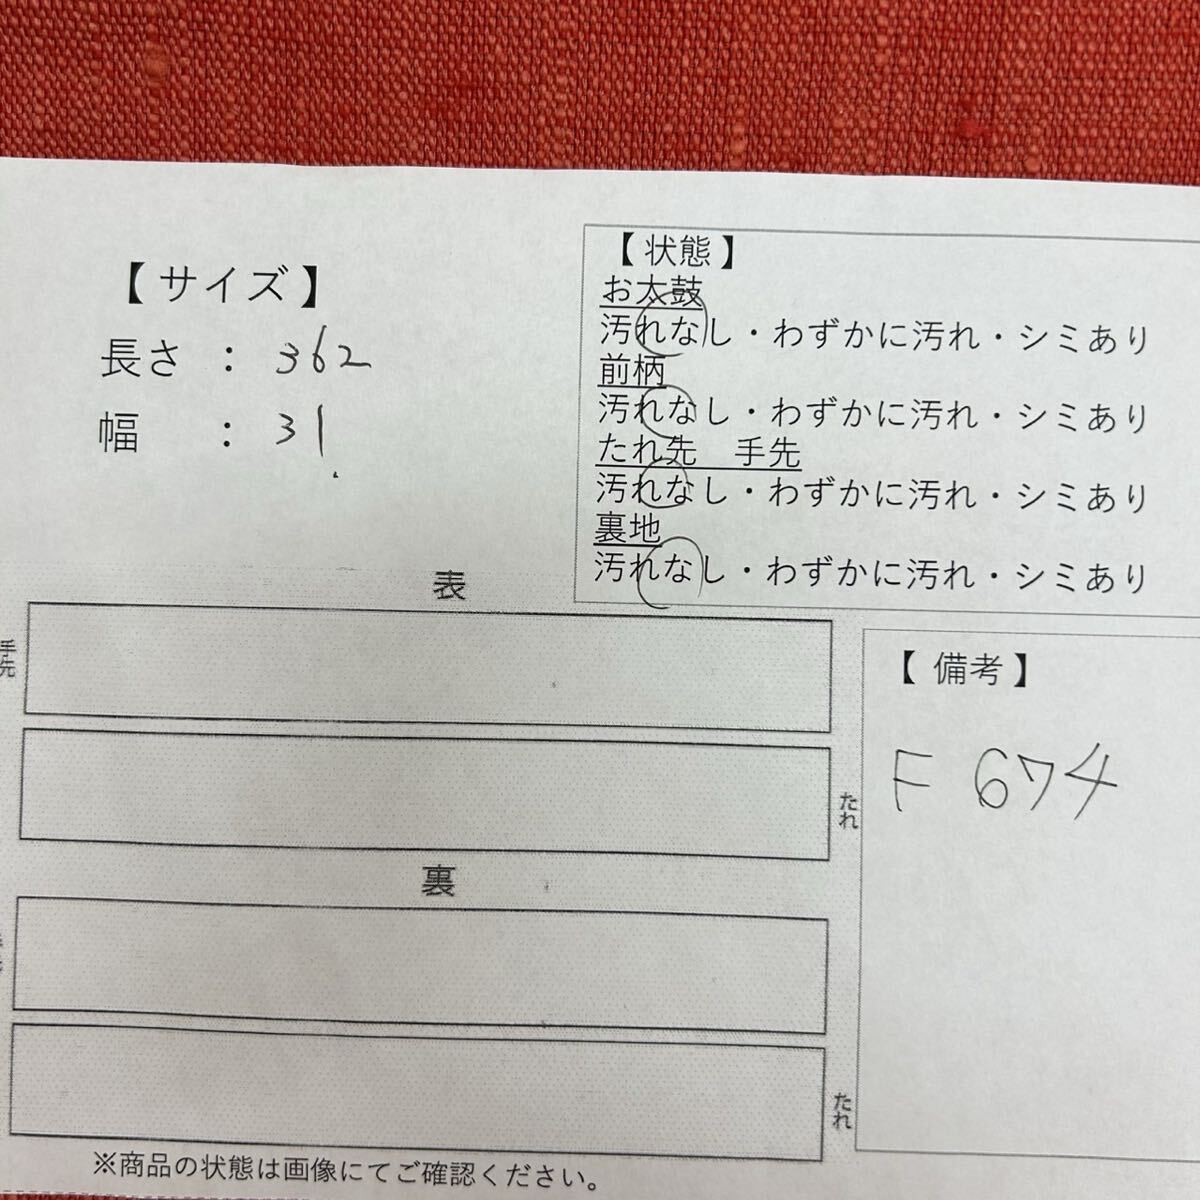 【 サイズ 】
長さ ： 362
幅 ： 31
【 状態 】
お太鼓
汚れなし・わずかに汚れ・シミあり
前柄
汚れなし・わずかに汚れ・シミあり
たれ先 手先
汚れなし・わずかに汚れ・シミあり
裏地
汚れなし・わずかに汚れ・シミあり
表
手先
たれ
【 備考 】
F 674
裏
たれ
※商品の状態は画像にてご確認ください。